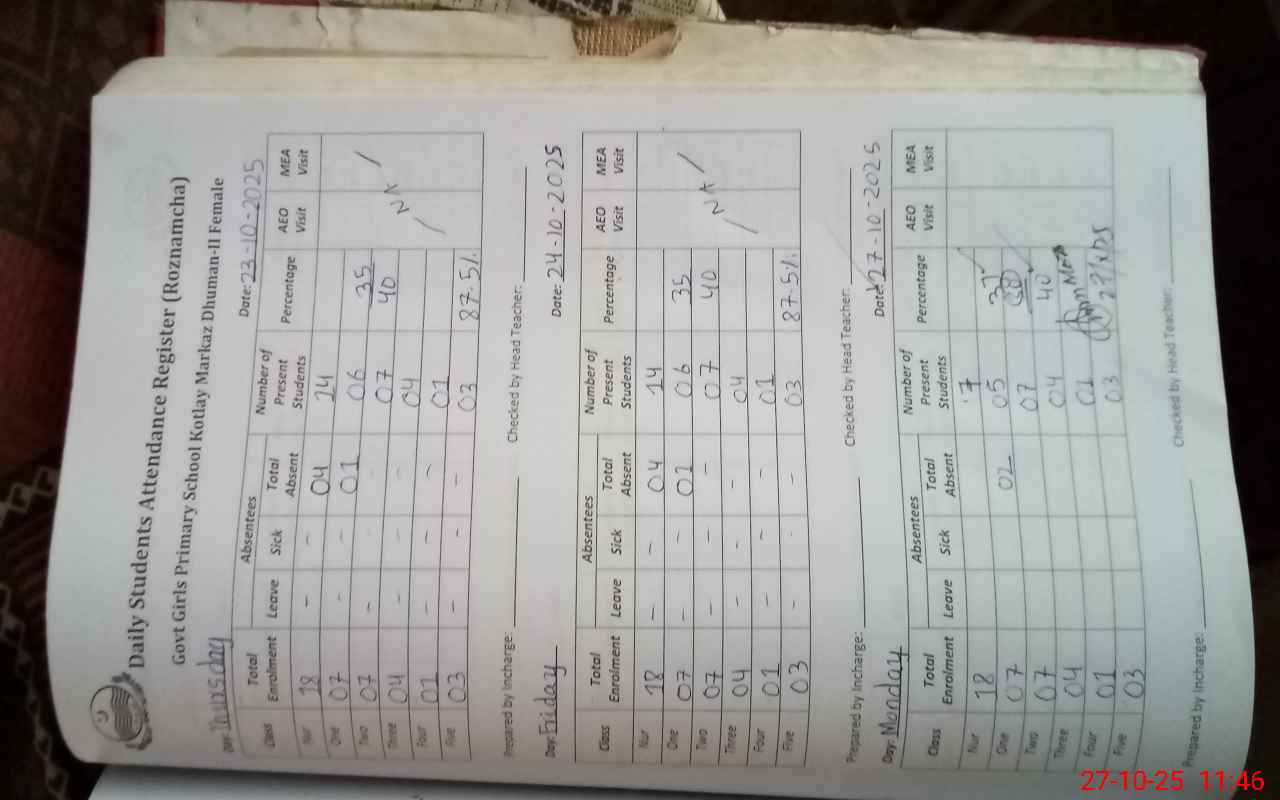 Daily Students Attendance Register (Roznamcha)
Govt Girls Primary School Kotlay Markaz Dhuman-II Female
Day: Thursday Date: 23-10-2025
Class Total Enrolment Absentees Number of Present Students Percentage AEO Visit MEA Visit
Leave Sick Total Absent
Nur 18 - - 04 14
One 07 - 01 06 35
Two 07 - - 07 40
Three 04 - - - 04
Four 01 - - - 01
Five 03 - - - 03 87.5%
Prepared by Incharge: Checked by Head Teacher:
Day: Friday Date: 24-10-2025
Class Total Enrolment Absentees Number of Present Students Percentage AEO Visit MEA Visit
Leave Sick Total Absent
Nur 18 - - 04 14
One 07 - - 01 06 35
Two 07 - - - 07 40
Three 04 - - - 04
Four 01 - - - 01
Five 03 - - - 03 87.5%
Prepared by Incharge: Checked by Head Teacher:
Day: Monday Date: 27-10-2025
Class Total Enrolment Absentees Number of Present Students Percentage AEO Visit MEA Visit
Leave Sick Total Absent
Nur 18
One 07 02 05
Two 07 07 40
Three 04 04
Four 01 01
Five 03 03
Prepared by Incharge: Checked by Head Teacher:
27-10-25 11:46